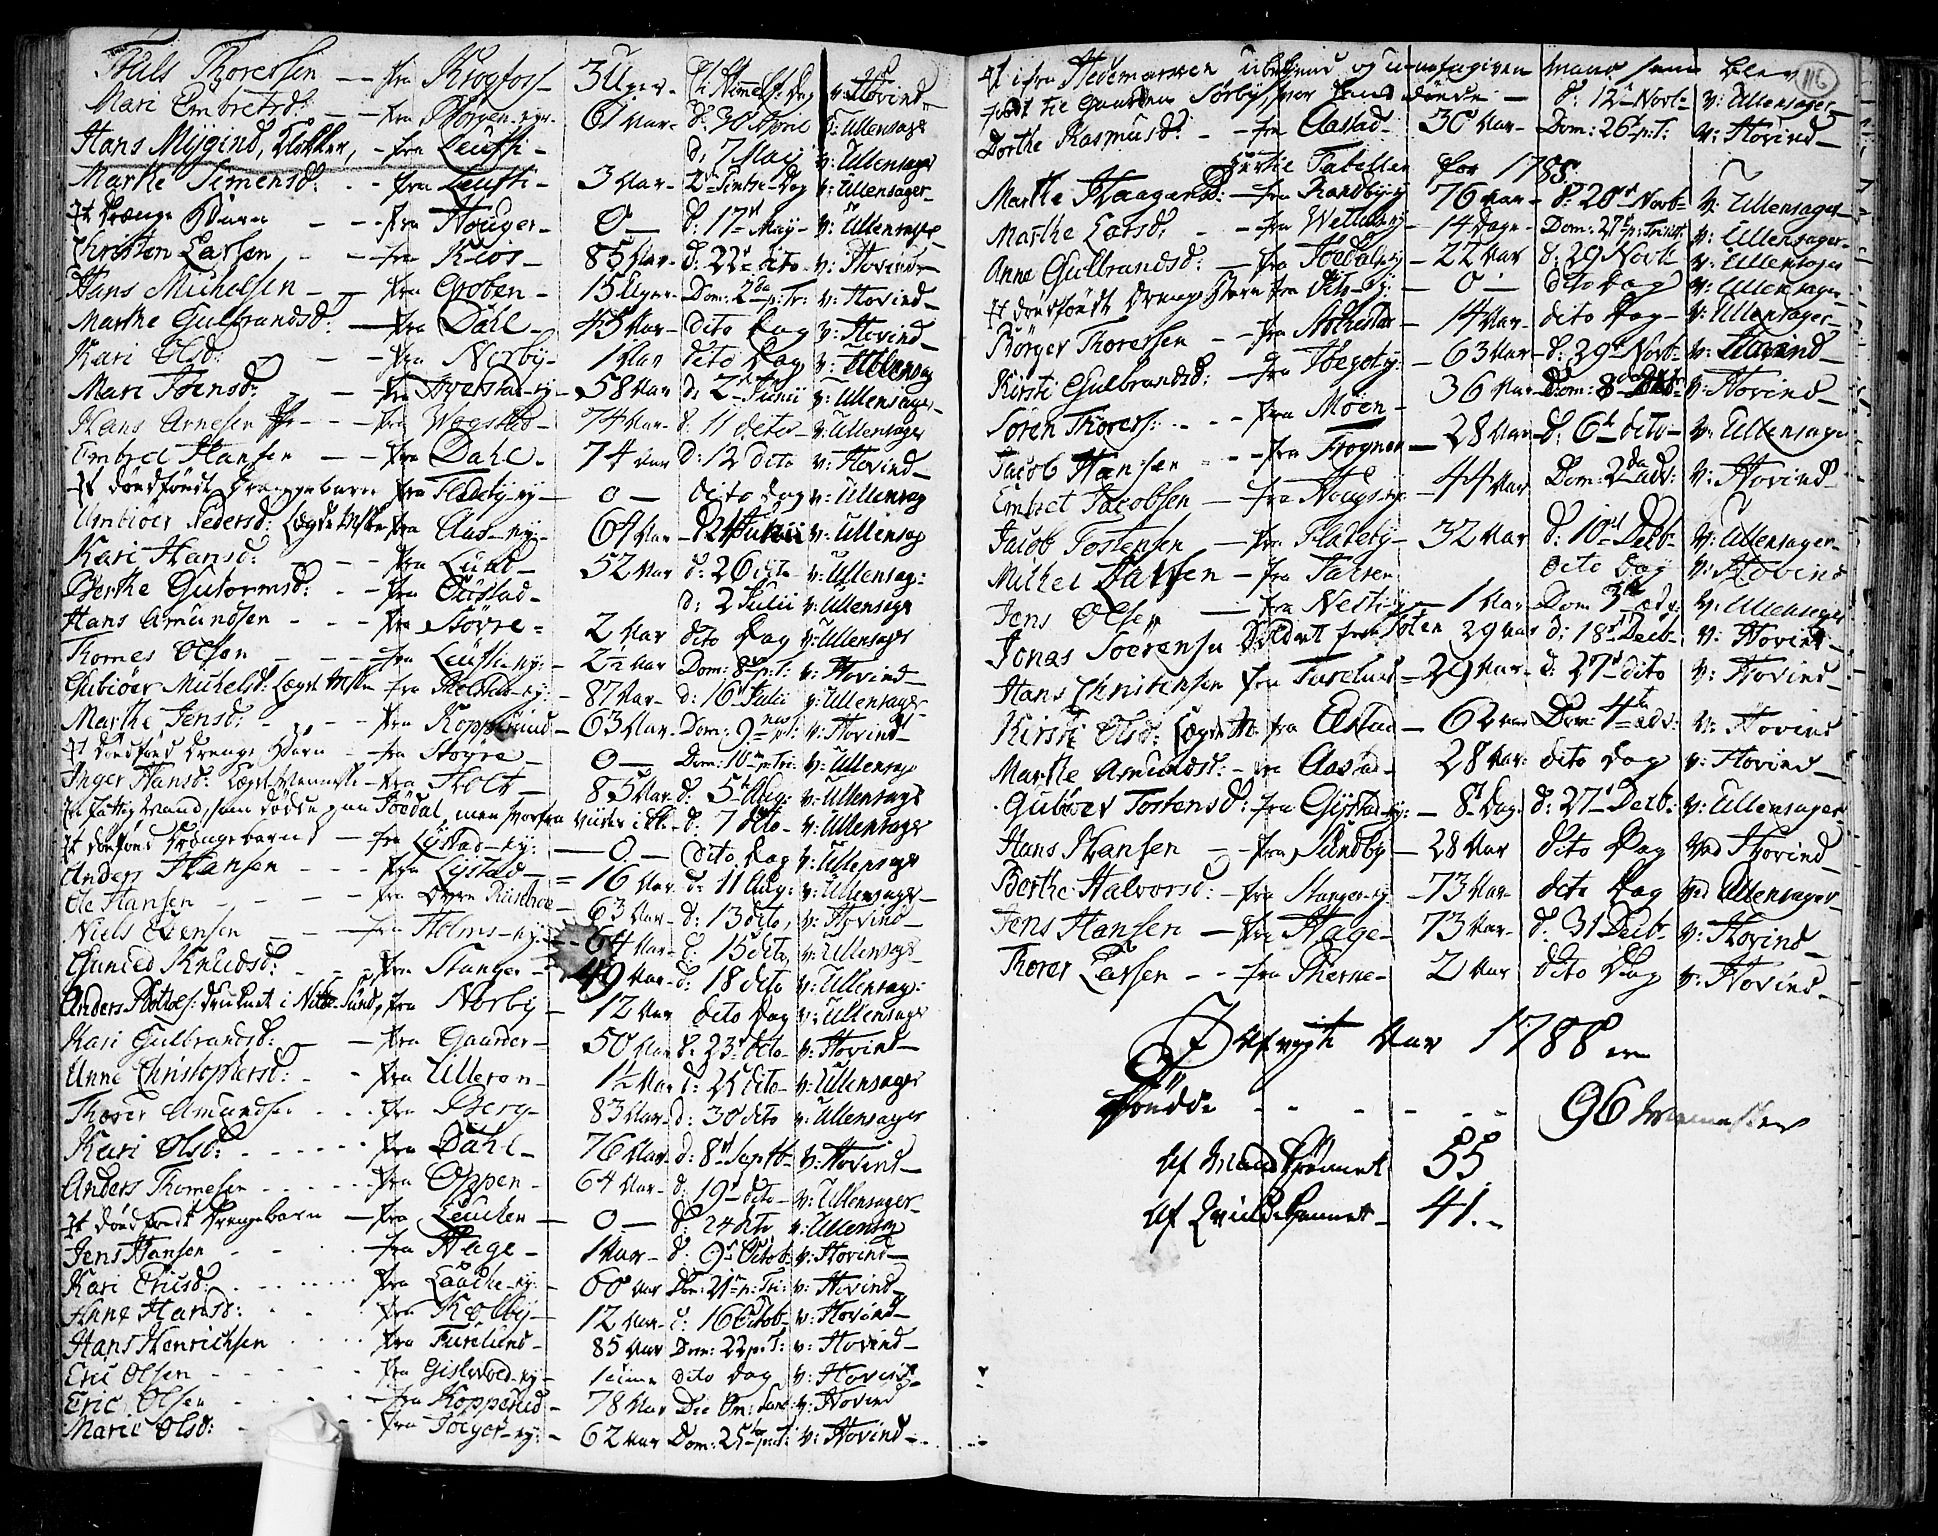 Niels Thoresen -- fra Krogfos- 3 Uger- Chr: Himmelf: Dag v: Hovind-
Mari Embretsd: -- fra 61 Aar- d: 30 April v: Ullensager
Hans Mygind, Klokker, - fra - d: 7 Maij v: Ullensager
Marthe Simensd: - - fra - 3 Aar- 2den Pintse-Dag v: Ullensager-
Et Drænge Barn - - - fra Houger- 0 - d: 17 May- v: Ullensager
Christen Larsen - - fra Kios- 85 Aar- d: 22 dito- v: Hovind-
Hans Michelsen - - fra Groben- 15 Uger- Dom: 2da p: Tr: v: Hovind-
Marthe Gulbrandsd: - fra Dahl- 45 Aar- dito Dag v: Hovind-
Kari Olsd: - - fra Norby- 1 Aar dito Dag v: Ullensag
Mari Jensd: - fra 58 Aar d: 2 Junii v: Ullensager-
Hans Arnesen - - - fra Wogstad- 74 Aar- d: 11 dito- v: Ullensager
Embret Hansen - - fra Dahl- 74 Aar d: 12 dito v: Hovind-
Et dødfødt Drængebarn fra Fladeby-ey- 0 - dito Dag v: Ullensag
Pedersd: Lægds fra Aas-ey- 69 Aar- Junii v: Ullensag
Kari Hansd: - - - fra Lund- 52 Aar d: 26 dito v: Ullensag:
Berthe Gutormsd: - - fra - d: 2 Julii v: Ullensager
Hans Amundsen - - - fra Støvre- 2 Aar dito Dag v: Ullensager
Thomes Olsen - - - fra -ey: - 2½ Aar Dom: 8 p: T: v: Hovind-
Gubiør Michelsd: Lægds fra -ey: - 87 Aar- d: 16 Julii v: Ullensager
Marthe Jensd: - - - fra Kopperud- 63 Aar- Dom: 9 p: T: v: Hovind-
Et dødfød Drænge Barn - fra Støvre- 0 - Dom: 10 p: Tri: v: Ullensag
Inger Hansd: Lægds Menniske - fra Holt- 85 Aar- d: 5 Aug: v: Ullensager
En fattig Mand, som døde paa Jødal, men hvorfra vides ikke- d: 7 dito- v: Ullensager
Et dødfød Drængebarn - fra Lystad-ey: - 0 - dito Dag v: Ullensager
Anders Hansen - - - fra Lystad- 16 Aar- d: 11 Aug: v: Ullensager-
Ole Hansen - - - fra 63 Aar- d: 13 dito, v: Hovind-
Niels Evensen - - fra Holms-ey- 64 Aar- d: 15 dito, v: Ullensager-
Gunild Knudsd: - - fra Stanger- 49 Aar- d: 18 dito v: Ullensag:
Anders druknet i Sund, fra Norby- 12 Aar dito Dag v: Ullensager
Kari Gulbrandsd: - fra Gaarder- 50 Aar d: 23 dito- v: Hovind-
Anne Christophersd: - - fra Ulleron- 1½ Aar d: 25 dito- v: Ullensager
Thorer Amundsen - - - fra Berg- 83 Aar- d: 30 dito v: Ullensager
Kari Olsd: - - - - - fra Dahl- 76 Aar- d: 8 Septb- v: Hovind-
Anders Thomesen - - - - fra Oppen- 64 Aar- d: 19 dito- v: Ullensager-
Et dødfødt Drengebarn - fra - 0 - d: 24 dito v: Ullensag
Jens Hansen - - - fra Hage- 1 Aar- d: 9 Octob: v: Hovind-
Kari Ericsd: - - - - - fra Laache-ey: - 60 Aar Dom: 21 p: Tri: v: Hovind-
Anne Hansd: - - fra Kolby- 12 Aar- d: 16 Octob- v: Hovind-
Hans Henrichsen - - - - fra Furelund- 85 Aar Dom: 22 p: T: v: Hovind-
Eric Olsen - - - - - fra -ey- dito Dag v: Hovind-
Eric Olsen - - - - fra Kopperud- 78 Aar v: Hovind
Marie Olsd: - - - fra -ey: - 62 Aar Dom: 25 p: T: v: Hovind-
116
Et ifra Hedemarcken ubekiend og unafngiven Mand som blev
ført til Gaarden Sørby, hvor hand døde - d: 12 Novb- v: Ullensager-
Dorthe Rasmusd: - - fra Aastad- 30 Aar- Dom: 26 p: T: v: Hovind-
Tabellen for 1788.
Marthe Haagensd: - fra Randby-ey 76 Aar- d: 20 Novb- v: Ullensager-
Marthe Larsd: - - fra 14 Dage- Dom: 27 p: Trinit: v: Ullensager-
Anne Gulbrandsd: - fra Jødal-ey- 22 Aar d: 29 Novb- v: Ullensager
Et dødfødt Drenge Barn fra dito-ey: - 0 - dito Dag v: Ullensager-
Børger Thoresen - fra - 14 Aar- dito Dag- v: Ullensager-
Kirsti Gulbrandsd: - fra - 63 Aar- d: 29 Novb- v: Hovind-
Søren Thoress: - - - fra Moen- 36 Aar v: Hovind-
Jacob Hansen - - fra Frogner- 28 Aar d: 6 dito- v: Ullensager
Embret Jacobsen - fra -ey- 44 Aar Dom: 2da adv: v: Hovind
Jacob Tostensen - fra Fladeby- 32 Aar d: 10 Decb- v: Ullensager-
Michel Larsen - fra dito Dag v: Hovind
Jens Olsen - fra -ey- 1 Aar Dom 3 adv: v: Ullensager
Jonas Sørensen Soldat fra Toten 29 Aar d: 18 Decb- v: Hovind-
Hans Christensen fra Furelund- 29 Aar- d: 27 dito v: Hovind-
Kirsti Olsd: Lægds M. fra Elstad- 62 Aar Dom: 4 adv: v: Hovind
Marthe Amundsd: - fra Aastad- 28 Aar: dito Dag v: Hovind-
Gubiør Tostensd: fra Gystad-ey: - 8 Dag: d: 27 Decb: v: Ullensager
Hans Hansen - - fra Sundby- 28 Aar dito Dag Ved Hovind-
Berthe Halvorsd: - fra Stanger-ey - 73 Aar- dito Dag Ved Ullensager-
Jens Hansen - fra Hage- 73 Aar- d: 31 Decb- v: Hovind-
Thorer Larsen - - fra - 2 Aar dito Dag v: Hovind-
I Afvigte Aar 1788 ere
Døde - - - - - - 96 Mennesker
Af Mandkiønnet 55.
Af Qvindekiønnet- 41.-